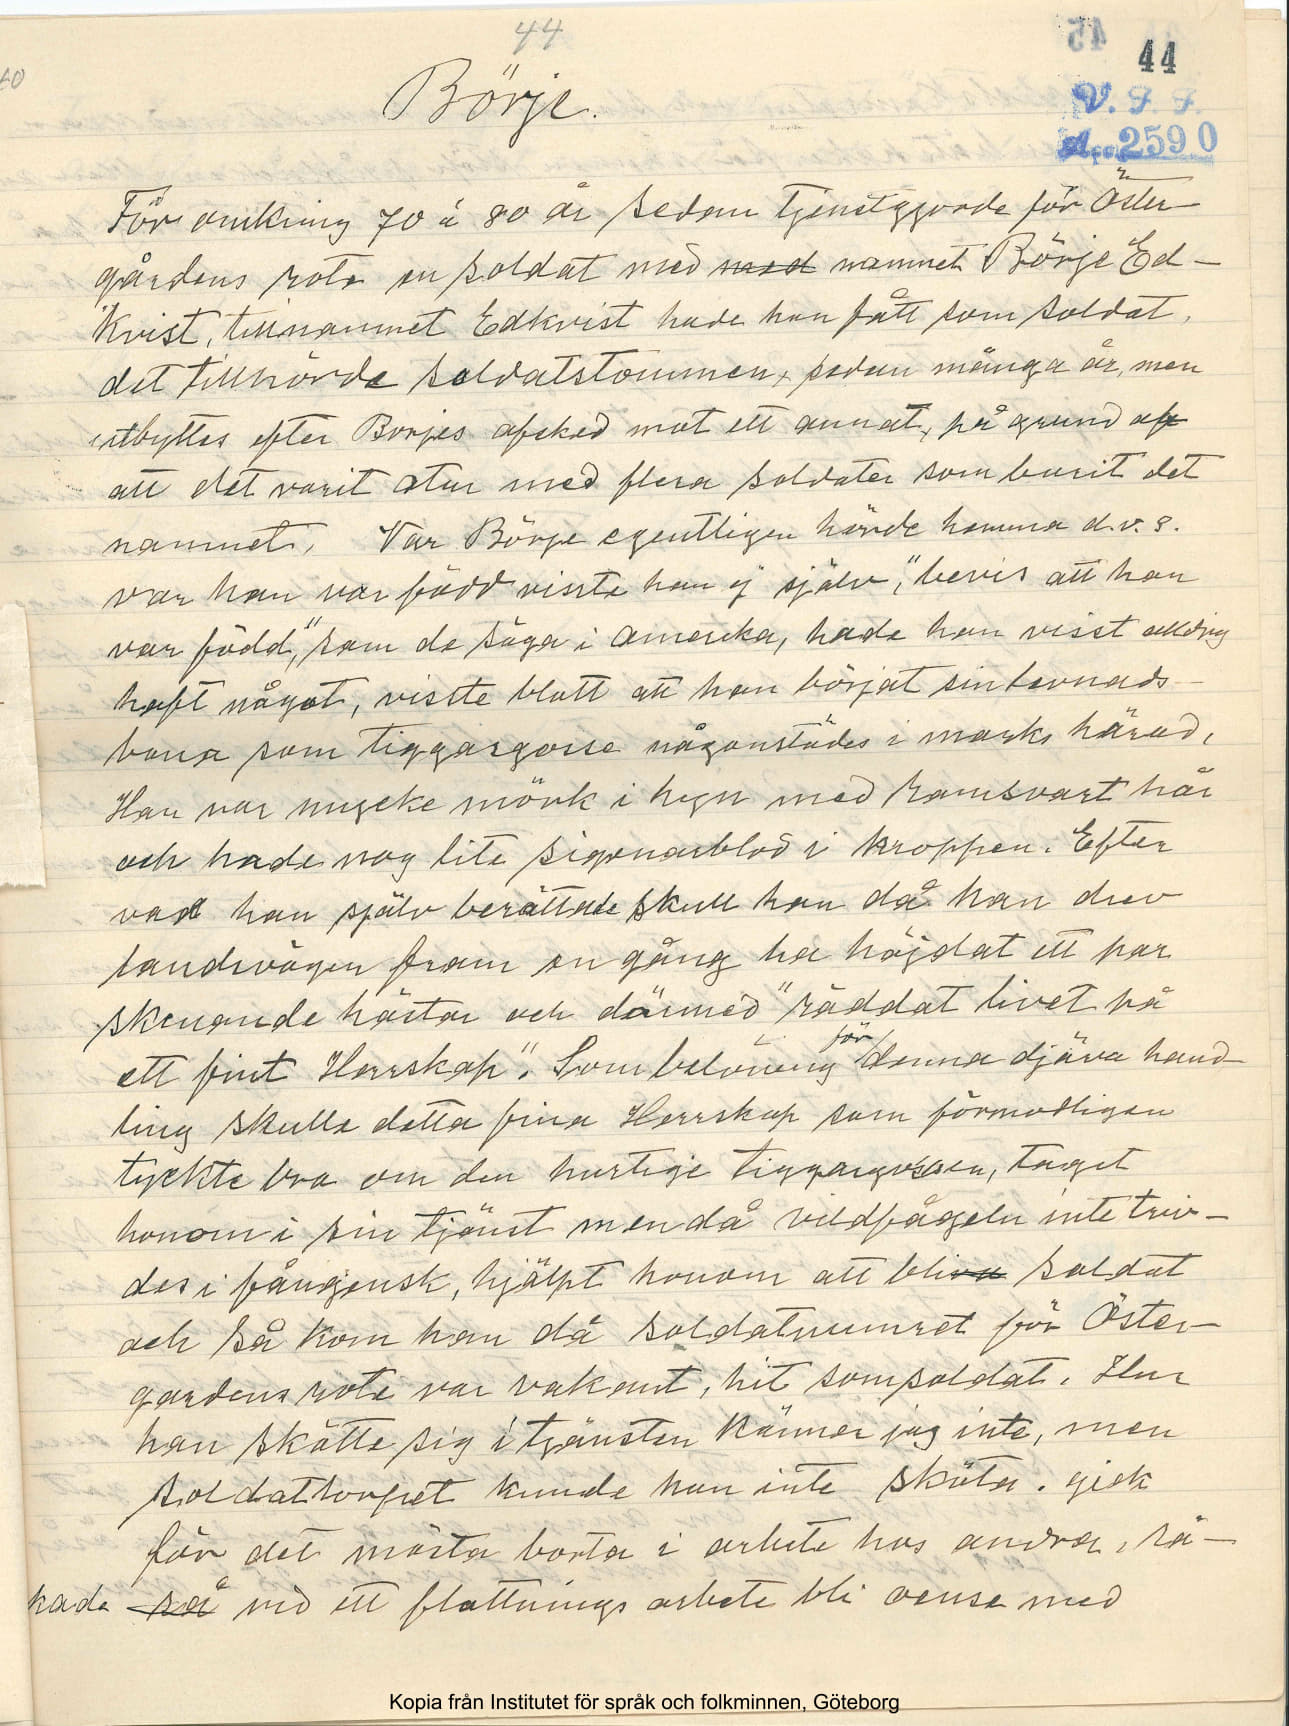 44
44
V. F. F.
Acc. 2590
Börje.
För omkring 70 á 80 år sedan tjenstgjorde för Öster-
gårdens rote en soldat med med namnet Börje Ed-
kvist, tillnamnet Edkvist hade han fått som soldat,
det tillhörde soldatstommen, sedan många år, men
utbyttes efter Borjes afsked mot ett annat, på grund af
att det varit otur med flera soldater som burit det
namnet. Var Börje egentligen hörde hemma d.v.s.
var han var född visste han ej själv, "bevis att han
var född," som de säga i Amerika, hade han visst alldrig
haft något, visste blott att han börjat sin levnads-
bana som tiggargosse någonstädes i marks härad,
Han var mycke mörk i hyn med ramsvart hår
och hade nog lite sigenarblod i kroppen. Efter
vad han själv berättade skull han då han drev
landsvägen fram en gång ha höjdat ett par
skenande hästar och därmed "räddat livet på
ett fint Herrskap". Som belöning för denna djärva hand-
ling skulle detta fina Herrskap som förmodligen
tyckte bra om den hurtige tiggargossen, taget
honom i sin tjänst men då vildfågeln inte triv-
des i fångensk, hjälpt honom att bliva soldat
och så kom han då soldatnumret för Öster-
gardens rote var vakant, hit som soldat. Hur
han skötte sig i tjänsten känner jag inte, men
soldattorpet kunde han inte sköta. gick
för det mästa borta i arbete hos andra, rå-
kade så vid ett flottnings arbete bli ovense med
Kopia från Institutet för språk och folkminnen, Göteborg